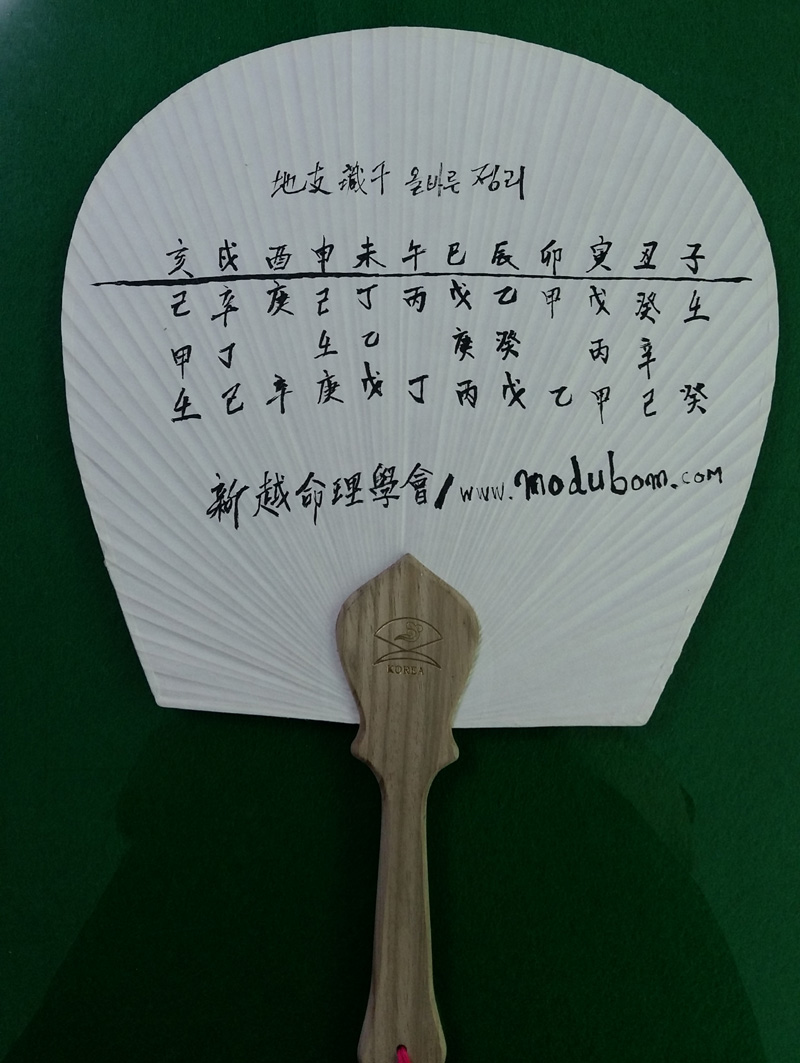 地支 藏干 올바른 정리
亥 戌 酉 申 未 午 巳 辰 卯 寅 丑 子
己 辛 庚 己 丁 丙 戊 乙 甲 戊 癸 壬
甲 丁 壬 乙 庚 癸 丙 辛
壬 己 辛 庚 戊 丁 丙 戊 乙 甲 己 癸
新越命理學會/www.modubom.com
KOREA